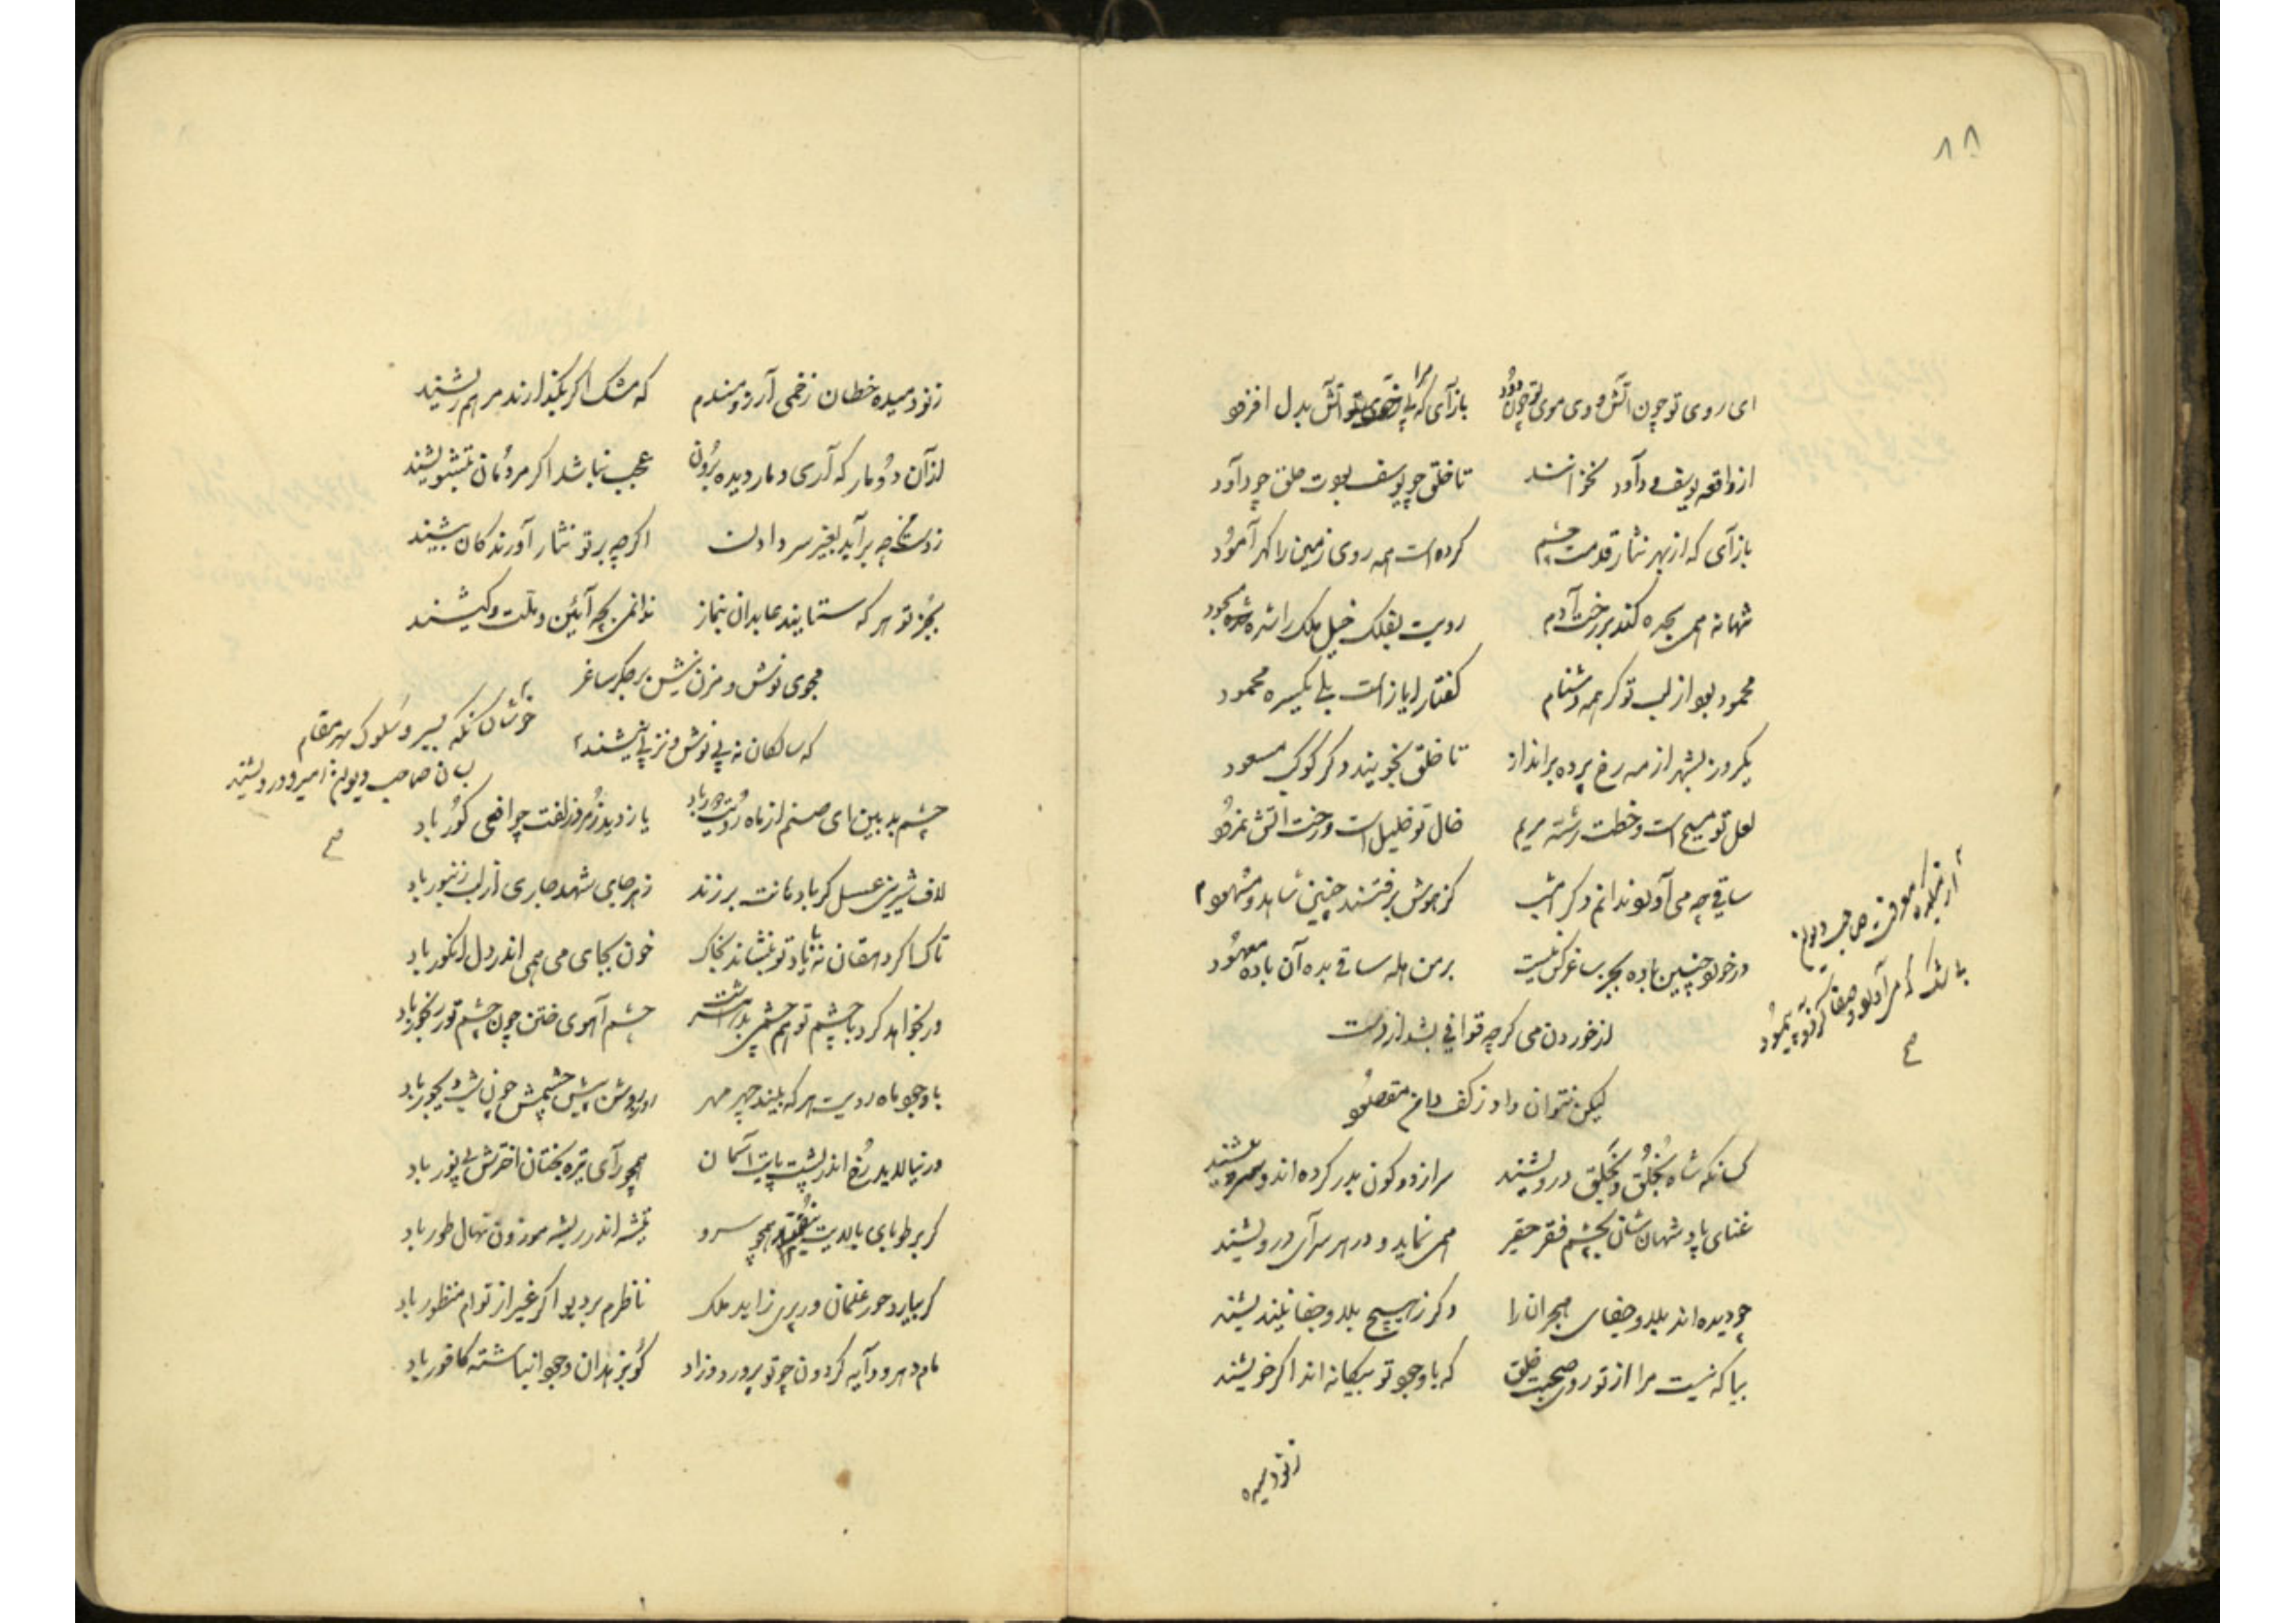 ۸۸
ای روی تو چون آتش و وی موی تو چون دود بازآی که مرا بی تو آتش بدل افزود
از واقعه یوسف و داود نخوانند تا خلق چو یوسف بودت حلق چو داود
بازآی که از بهر نثار قدمت چشم کرده است همه روی زمین را گهرآمود
شهانه همی سجده کند بر رخت آدم رویت بفلک خیل ملک را شده مسجود
محمود بود از لب تو گر همه دشنام گفتار ایاز است بلی یکسره محمود
یکروز بشهر از مه رخ پرده برانداز تا خلق نجویند دگر کوکب مسعود
لعل تو مسیح است و خطت رشته مریم خال تو خلیل است و رخت آتش نمرود
ساقی چه می آورد ندانم دگر امشب کز هوش برفتند چنین شاهد و مشهود
درخورد چنین باده بجز ساغر کس نیست بر من هله ساقی بده آن باده معهود
از خوردن می گرچه قوافی بشد از دست
لیکن نتوان داد ز کف دامن مقصود
کسانکه شاه بخُلق و بخَلق درویشند سر از دو کون بدر کرده اند و
غنای پادشهان شان بچشم فقر حقیر همی نماید و در هر سرآی درویشند
چو دیده اند بلا و جفای هجران را دگر ز هیچ بلا و جفا نیندیشند
بیا که نیست مرا از تو روی صحبت خلق که با وجود تو بیگانه اند اگر خویشند
ز نودمیده
ز نودمیده خطان زخمی آرزومندم که مشک اگر بگذارند مرهم ریشند
از آن دو مار که آری دمار دیده برون عجب نباشد اگر مردمان بتشویشند
ز دست ما چه برآید بغیر سر دادن اگرچه بر تو نثار آورندکان بیشند
بجز تو هر که ستایند عابدان بنماز ندانمی بچه آیین و ملت و کیشند
مجوی نوش و مزن نیش بر جگر ساغر
که سالکان نه پی نوش و نز پی نیشند
خوشان کسانکه بسیر و سلوک هر مقام
بسان صاحب دیوان امیر و درویشند
صح
چشم بد بین ای صنم از ماه رویت دور باد یا ز دید زمرد زلفت چو افعی کور باد
لاف شیرینی عسل گر با دهانت برزند زهر جای شهد جاری از لب زنبور باد
تاک را گر دهقان نه با یاد تو بنشاند بخاک خون بجای می همی اندر دل انگور باد
ور نخواهد کرد با چشم تو هم چشمی بدشت چشم آهوی ختن چون چشم تو رنجور باد
با وجود ماه رویت هر که بیند چهر مهر روز روشن پیش چشمش چون شب دیجور باد
ور نیالاید رخ اندر پشت پایت آسمان همچو رآی تیره بختان اخترش بی نور باد
گر بر طوبای بالایت همچو سرو تیشه اندر ریشه موزون نهال طور باد
گر بیارد حور غلمان ور پری زاید ملک ناظرم بر دیو اگر غیر از توام منظور باد
مام دهر و دآیه گردون چو تو پرورد و زاد گو بزهدان وجود انباشته کافور باد